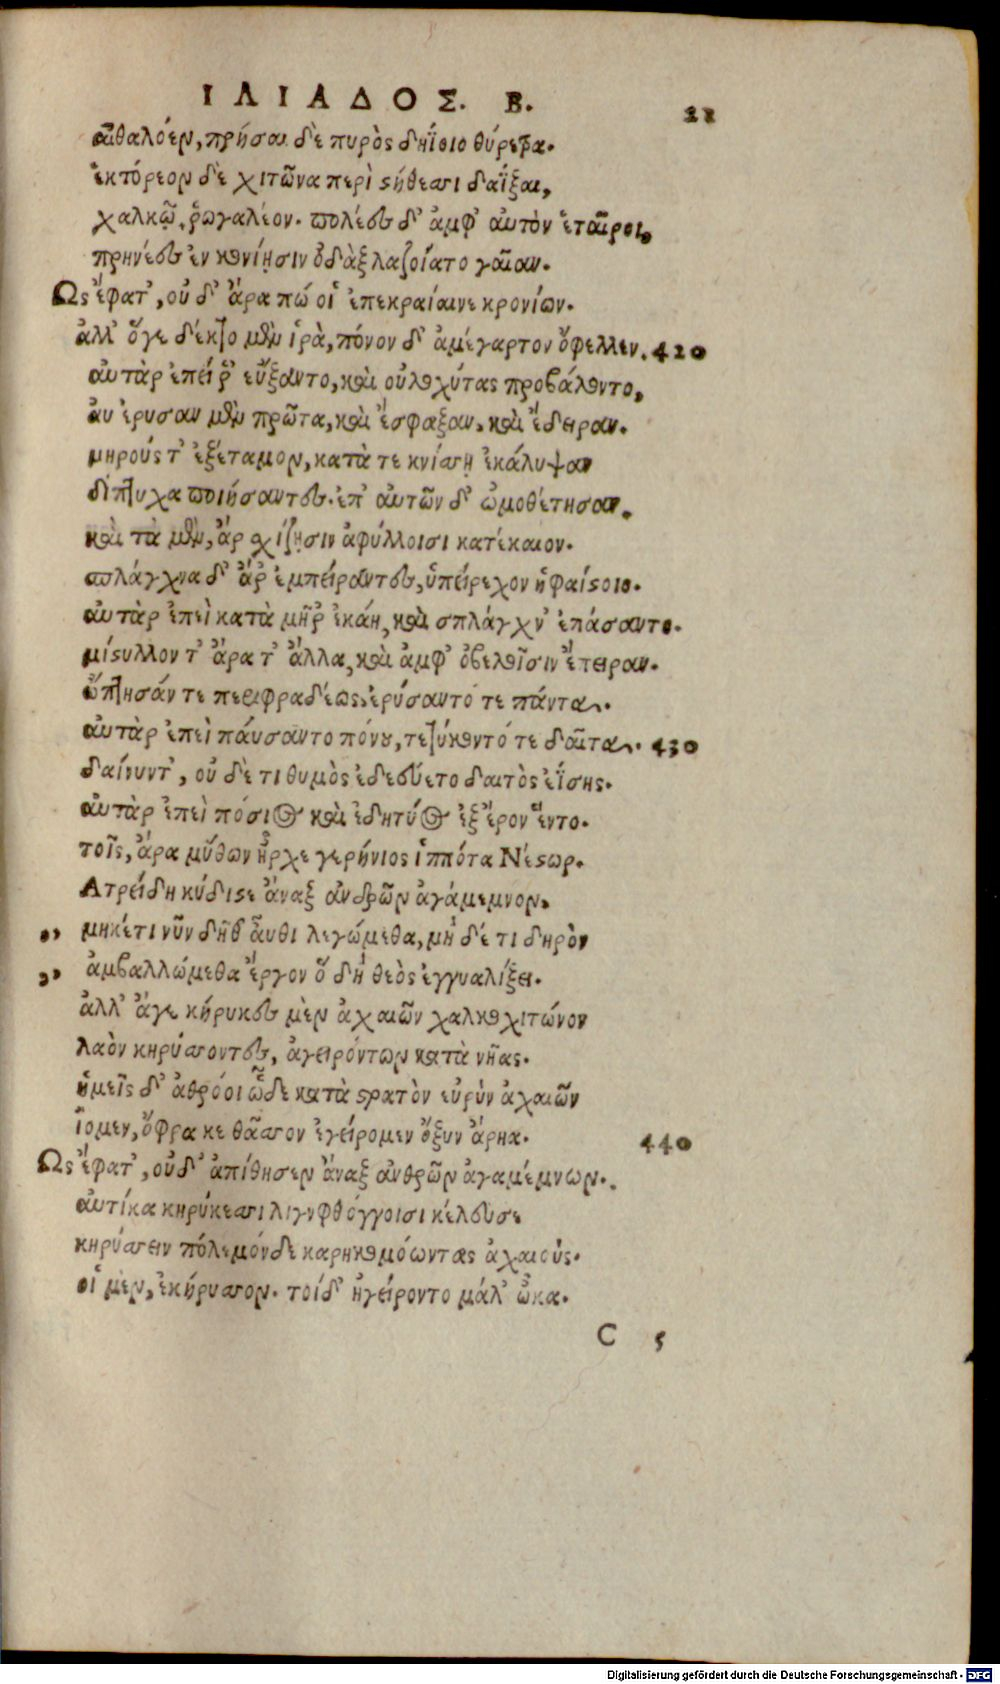 ΙΛΙΑΔΟΣ. Β.
22
αἰθαλόεν, πρῆσαι δὲ πυρὸς δηΐοιο θύρετρα.
ἑκτόρεον δὲ χιτῶνα περὶ στήθεσσι δαΐξαι,
χαλκῷ, ῥωγαλέον. πολέες δ' ἀμφ' αὐτὸν ἑταῖροι,
πρηνέες ἐν κονίῃσιν ὀδὰξ λαζοίατο γαῖαν.
Ως ἔφατ', οὐ δ' ἄρα πώ οἱ ἐπεκραίαινε κρονίων.
ἀλλ' ὅγε δέκτο μὲν ἱρὰ, πόνον δ' ἀμέγαρτον ὄφελλεν. 420
αὐτὰρ ἐπεί ῥ' εὔξαντο, καὶ οὐλοχύτας προβάλοντο,
αὐ ἔρυσαν μὲν πρῶτα, καὶ ἔσφαξαν, καὶ ἔδειραν.
μηρούς τ' ἐξέταμον, κατὰ τε κνίσσῃ ἐκάλυψαν
δίπτυχα ποιήσαντες. ἐπ' αὐτῶν δ' ὠμοθέτησαν.
καὶ τὰ μὲν, ἂρ σχίζῃσιν ἀφύλλοισι κατέκαιον.
σπλάγχνα δ' ἄρ' ἐμπείραντες, ὑπείρεχον ἡφαίστοιο.
αὐτὰρ ἐπεὶ κατὰ μῆρ' ἐκάη, καὶ σπλάγχν' ἐπάσαντο.
μίστυλλον τ' ἄρα τ' ἄλλα, καὶ ἀμφ' ὀβελοῖσιν ἔπειραν.
ὤπτησάν τε περιφραδέως, ἐρύσαντό τε πάντα.
αὐτὰρ ἐπεὶ παύσαντο πόνου, τετύκοντό τε δαῖτα. 430
δαίνυντ', οὐ δὲ τι θυμὸς ἐδεύετο δαιτὸς ἐΐσης.
αὐτὰρ ἐπεὶ πόσιος καὶ ἐδητύος ἐξ ἔρον ἕντο.
τοῖς, ἄρα μύθων ἦρχε γερήνιος ἱππότα Νέστωρ.
Ατρείδη κύδιστε ἄναξ ἀνδρῶν ἀγάμεμνον,
,, μηκέτι νῦν δηθ' αὖθι λεγώμεθα, μὴ δέ τι δηρὸν
,, ἀμβαλλώμεθα ἔργον ὃ δὴ θεὸς ἐγγυαλίξει.
ἀλλ' ἄγε κήρυκες μὲν ἀχαιῶν χαλκοχιτώνον
λαὸν κηρύσσοντες, ἀγειρόντων κατὰ νῆας.
ἡμεῖς δ' ἀθρόοι ὧδε κατὰ στρατὸν εὐρὺν ἀχαιῶν
ἴομεν, ὄφρα κε θᾶσσον ἐγείρομεν ὄξυν ἄρηα. 440
Ως ἔφατ', οὐδ' ἀπίθησεν ἄναξ ἀνδρῶν ἀγαμέμνων.
αὐτίκα κηρύκεσσι λιγυφθόγγοισι κέλευσε
κηρύσσειν πόλεμόνδε καρηκομόωντας ἀχαιούς.
οἱ μὲν, ἐκήρυσσον. τοίδ' ἠγείροντο μάλ' ὦκα.
C 5
Digitalisierung gefördert durch die Deutsche Forschungsgemeinschaft - DFG